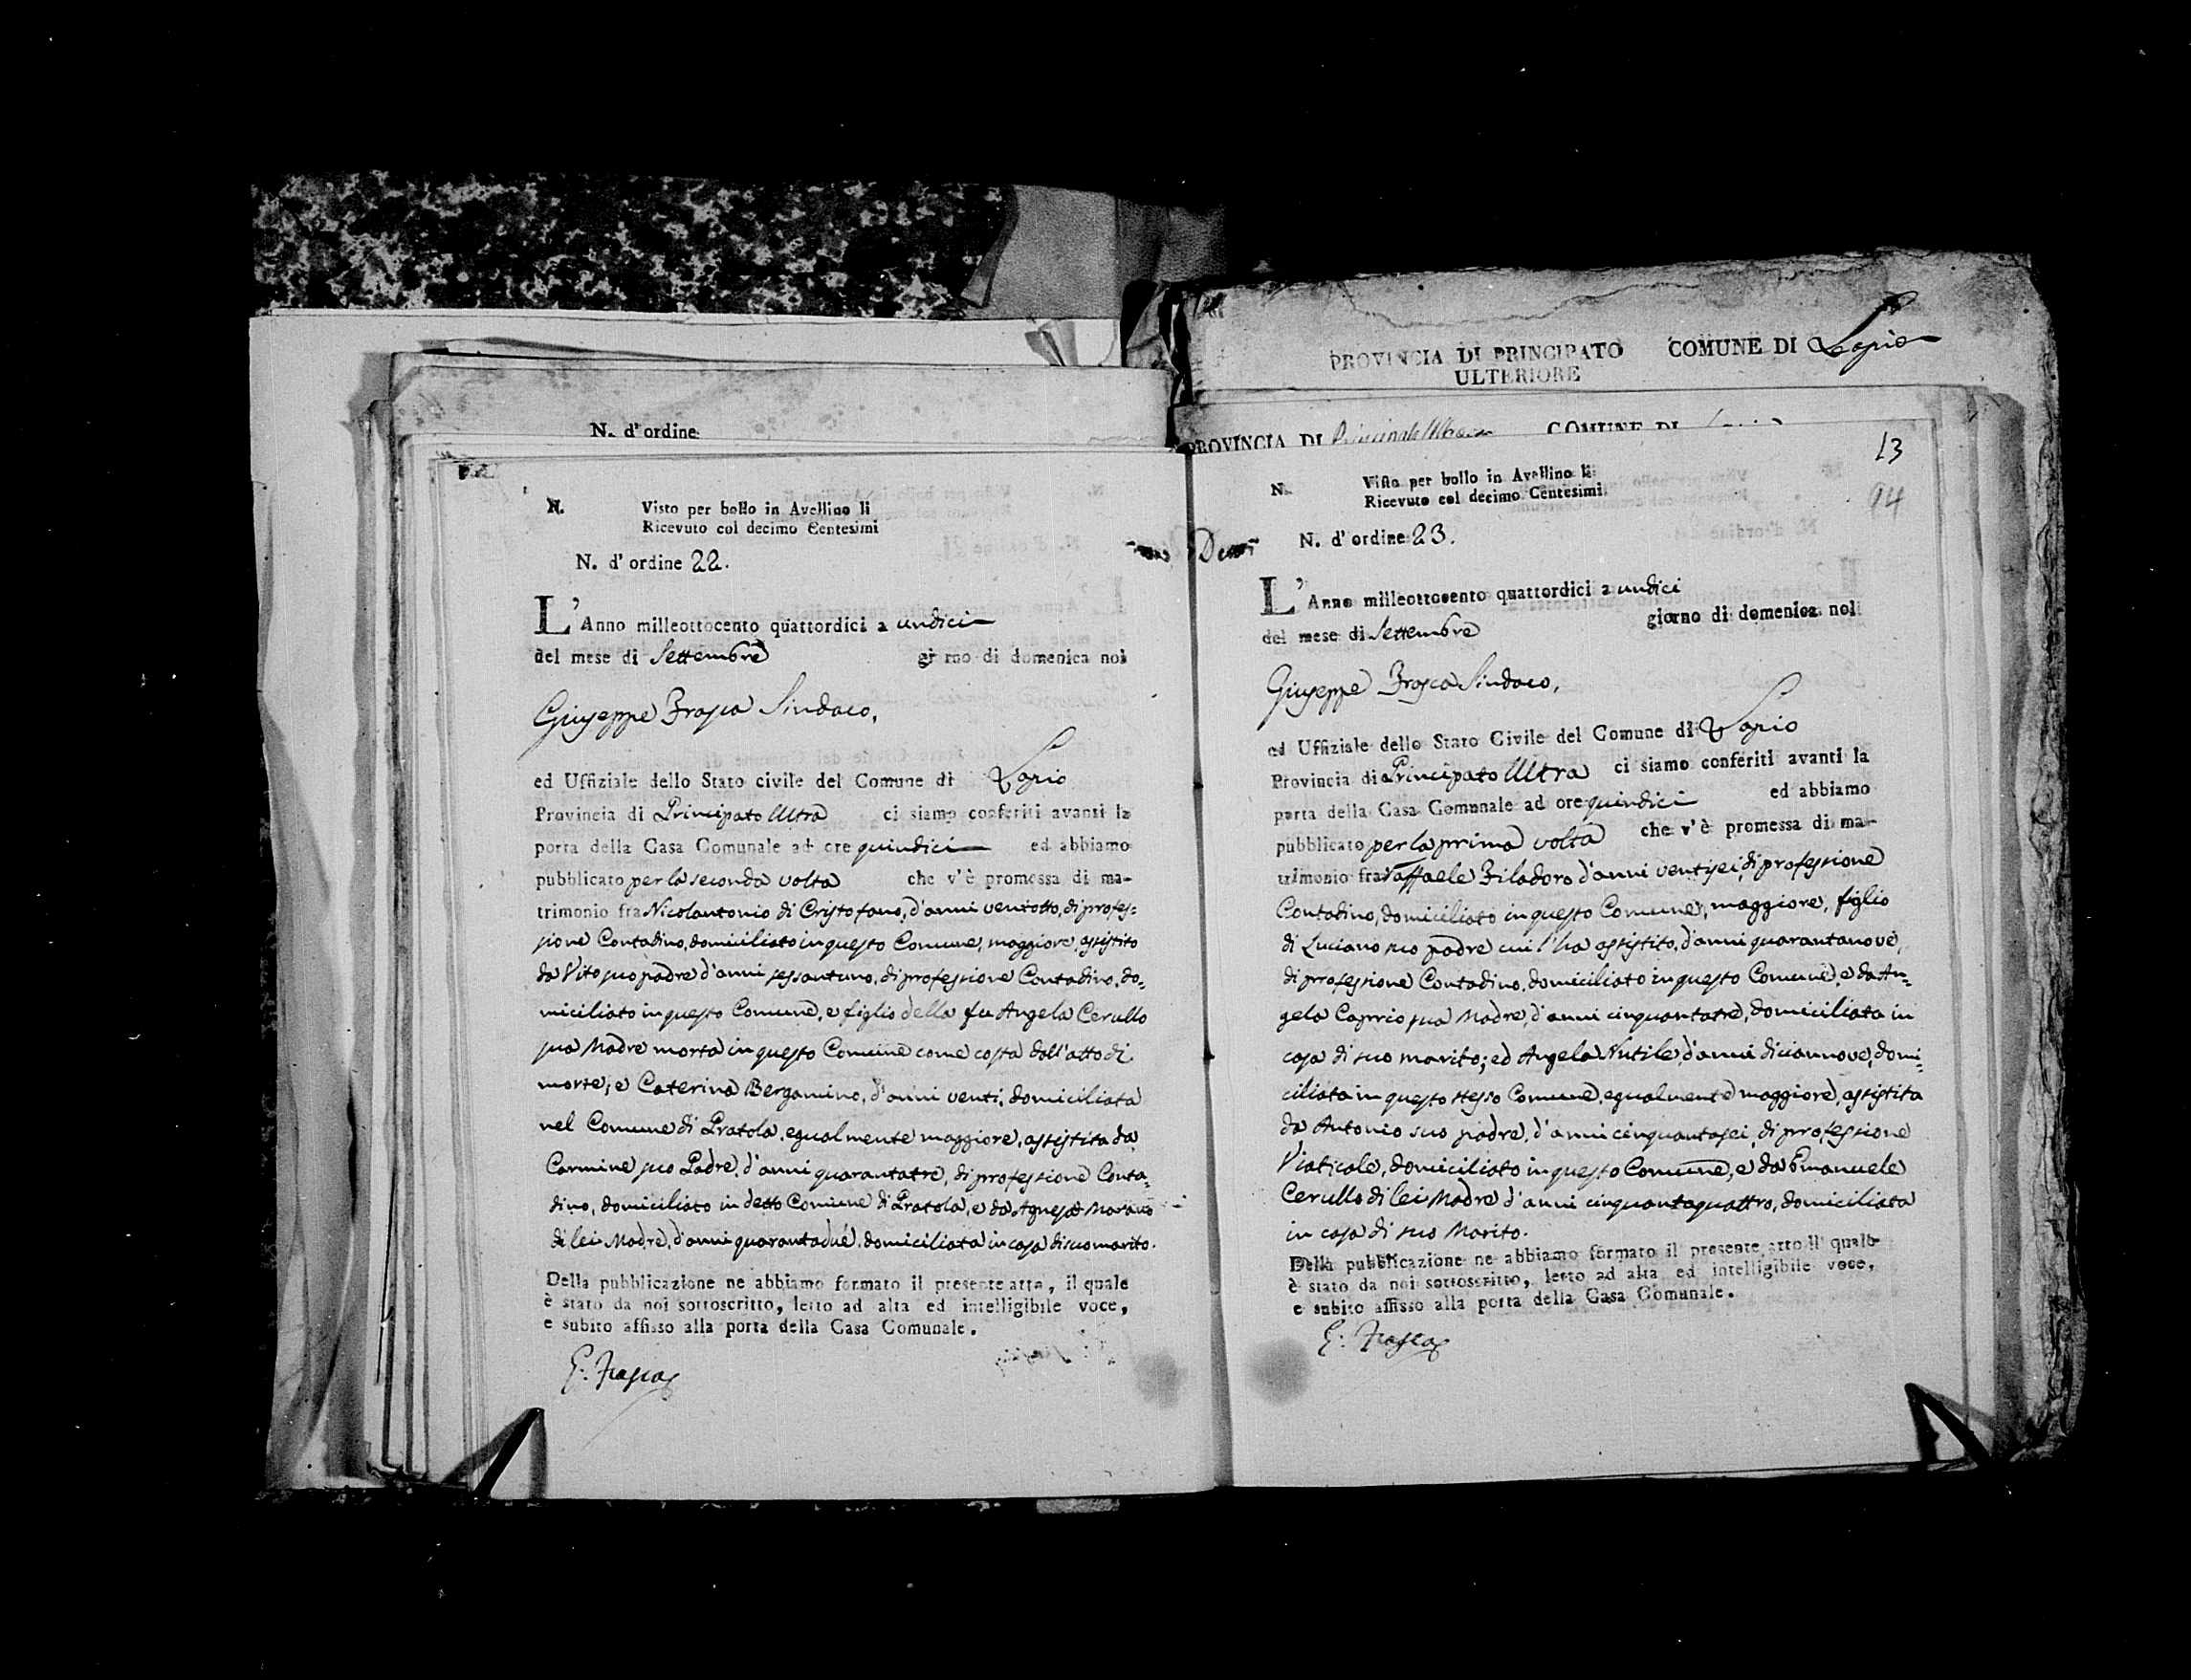 N. d' ordine
N. Visto per bollo in Avellino li
Ricevuto col decimo Centesimi
N. d' ordine 22.
L'Anno milleottocento quattordici a undici
del mese di Settembre giorno di domenica noi
Giuseppe Frasca Sindaco,
ed Uffiziale dello Stato civile del Comune di Lapio
Provincia di Principato Ultra ci siamo conferiti avanti la
porta della Casa Comunale ad ore quindici ed abbiamo
pubblicato per la seconda volta che v'è promessa di ma-
trimonio fra Nicolantonio di Cristofano, d'anni ventotto, di profes=
sione Contadino, domiciliato in questo Comune, maggiore, assistito
da Vito suo padre d'anni sessantuno, di professione Contadino, do=
miciliato in questo Comune, e figlio della fu Angela Cerullo
sua Madre morta in questo Comune come costa dall'atto di
morte; e Caterina Bergamino, d'anni venti, domiciliata
nel Comune di Pratola, egualmente maggiore, assistita da
Carmine suo Padre, d'anni quarantatre, di professione Conta=
dino, domiciliato in detto Comune di Pratola, e da Agnesa Marano
di lei Madre, d'anni quarantadue, domiciliata in casa di suo marito.
Della pubblicazione ne abbiamo formato il presente atto, il quale
è stato da noi sottoscritto, letto ad alta ed intelligibile voce,
e subito affisso alla porta della Casa Comunale.
G. Frasca
PROVINCIA DI PRINCIPATO COMUNE DI Lapio
ULTERIORE
PROVINCIA DI Principato Ultra COMUNE DI
13
94
N. Visto per bollo in Avellino li
Ricevuto col decimo Centesimi
N. d' ordine 23.
L'Anno milleottocento quattordici a undici
del mese di Settembre giorno di domenica noi
Giuseppe Frasca Sindaco,
ed Uffiziale dello Stato Civile del Comune di Lapio
Provincia di Principato Ultra ci siamo conferiti avanti la
porta della Casa Comunale ad ore quindici ed abbiamo
pubblicato per la prima volta che v'è promessa di ma-
trimonio fra Raffaele Filadoro d'anni ventisei, di professione
Contadino, domiciliato in questo Comune, maggiore, figlio
di Luciano suo padre cui l'ha assistito, d'anni quarantanove,
di professione Contadino, domiciliato in questo Comune, e da An=
gela Caprio sua Madre, d'anni cinquantatre, domiciliata in
casa di suo marito; ed Angela Nutile, d'anni diciannove, domi=
ciliata in questo stesso Comune, egualmente maggiore, assistita
da Antonio suo padre, d'anni cinquantasei, di professione
Viaticale, domiciliato in questo Comune, e da Emanuele
Cerullo di lei Madre d'anni cinquantaquattro, domiciliata
in casa di suo Marito.
Della pubblicazione ne abbiamo formato il presente atto il quale
è stato da noi sottoscritto, letto ad alta ed intelligibile voce,
e subito affisso alla porta della Casa Comunale.
G. Frasca